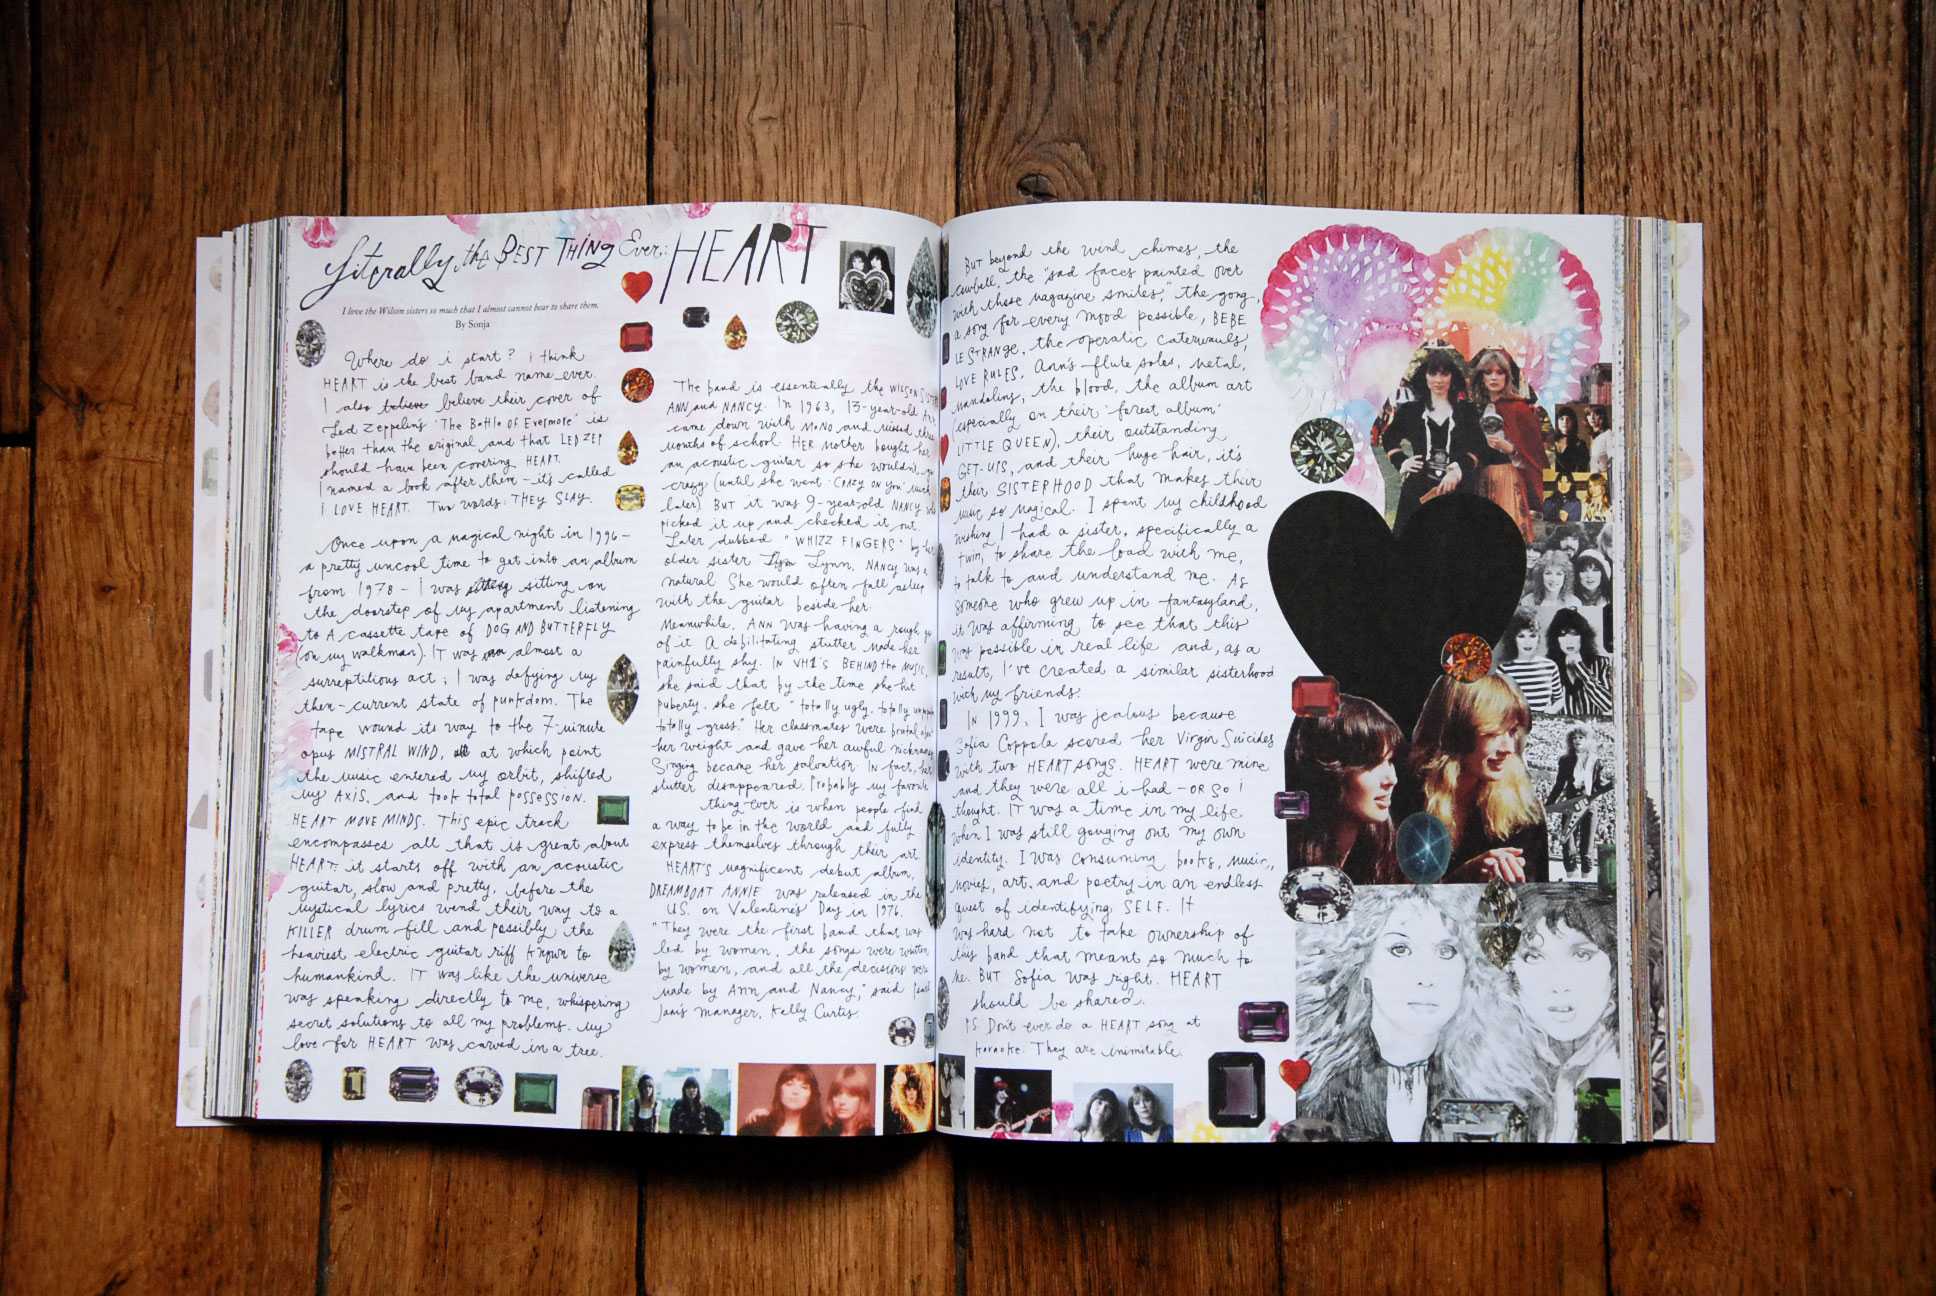 Literally the BEST THING Ever: HEART
I love the Wilson sisters so much that I almost cannot bear to share them.
By Sonja
Where do i start? i think
HEART is the best band name ever.
I also believe believe their cover of
Led Zeppelin's 'The Battle of Evermore' is
better than the original and that LED ZEP
should have been covering HEART.
I named a book after them – it's called
I LOVE HEART. Two words: THEY SLAY.
Once upon a magical night in 1996 –
a pretty uncool time to get into an album
from 1978 – I was sitting on
the doorstep of my apartment listening
to A cassette tape of DOG AND BUTTERFLY
(on my walkman). IT was almost a
surreptitious act; I was defying my
then-current state of punkdom. The
tape wound its way to the 7-minute
opus MISTRAL WIND, at which point
the music entered my orbit, shifted
my AXIS, and took total possession.
HEART MOVE MINDS. This epic track
encompasses all that is great about
HEART: it starts off with an acoustic
guitar, slow and pretty, before the
mystical lyrics wend their way to a
KILLER drum fill and possibly the
heaviest electric guitar riff known to
humankind. IT was like the universe
was speaking directly to me, whispering
secret solutions to all my problems. My
love for HEART was carved in a tree.
The band is essentially the WILSON
ANN and NANCY. In 1963, 13-year-old Ann
came down with MONO and missed three
months of school. HER mother bought her
an acoustic guitar so she wouldn't go
crazy (until she went 'CRAZY ON YOU' much
later). BUT it was 9-year-old NANCY who
picked it up and checked it out.
Later dubbed "WHIZZ FINGERS" by her
older sister Lynn, NANCY was a
natural. She would often fall asleep
with the guitar beside her.
Meanwhile, ANN was having a rough go
of it. A debilitating stutter made her
painfully shy. IN VH1'S BEHIND the MUSIC,
she said that by the time she hit
puberty, she felt "totally ugly, totally
totally gross." Her classmates were brutal about
her weight and gave her awful nicknames.
Singing became her salvation. IN fact, her
stutter disappeared. Probably my favorite
thing ever is when people find
a way to be in the world and fully
express themselves through their art.
HEART'S magnificent debut album,
DREAMBOAT ANNIE was released in the
U.S. on Valentine's Day in 1976.
"They were the first band that was
led by women, the songs were written
by women, and all the decisions were
made by Ann and Nancy," said
manager, Kelly Curtis.
BUT beyond the wind chimes, the
cowbell, the "sad faces painted over
with those magazine smiles," the gong,
a song for every mood possible, BEBE
LE STRANGE, the operatic caterwauls,
LOVE RULES, Ann's flute solos, metal,
mandolins, the blood, the album art
(especially on their 'forest album'
LITTLE QUEEN), their outstanding
GET-UPS, and their huge hair, it's
their SISTERHOOD that makes their
music so magical. I spent my childhood
wishing I had a sister, specifically a
twin, to share the load with me,
to talk to and understand me. As
someone who grew up in fantasyland,
it was affirming to see that this
was possible in real life and, as a
result, I've created a similar sisterhood
with my friends.
IN 1999, I was jealous because
Sofia Coppola scored her Virgin Suicides
with two HEART songs. HEART were mine
and they were all i had – OR SO I
thought. IT was a time in my life
when I was still gouging out my own
identity. I was consuming books, music,
movies, art, and poetry in an endless
quest of identifying SELF. It
was hard not to take ownership of
this band that meant so much to
me. BUT Sofia was right. HEART
should be shared.
PS Don't ever do a HEART song at
karaoke. They are inimitable.